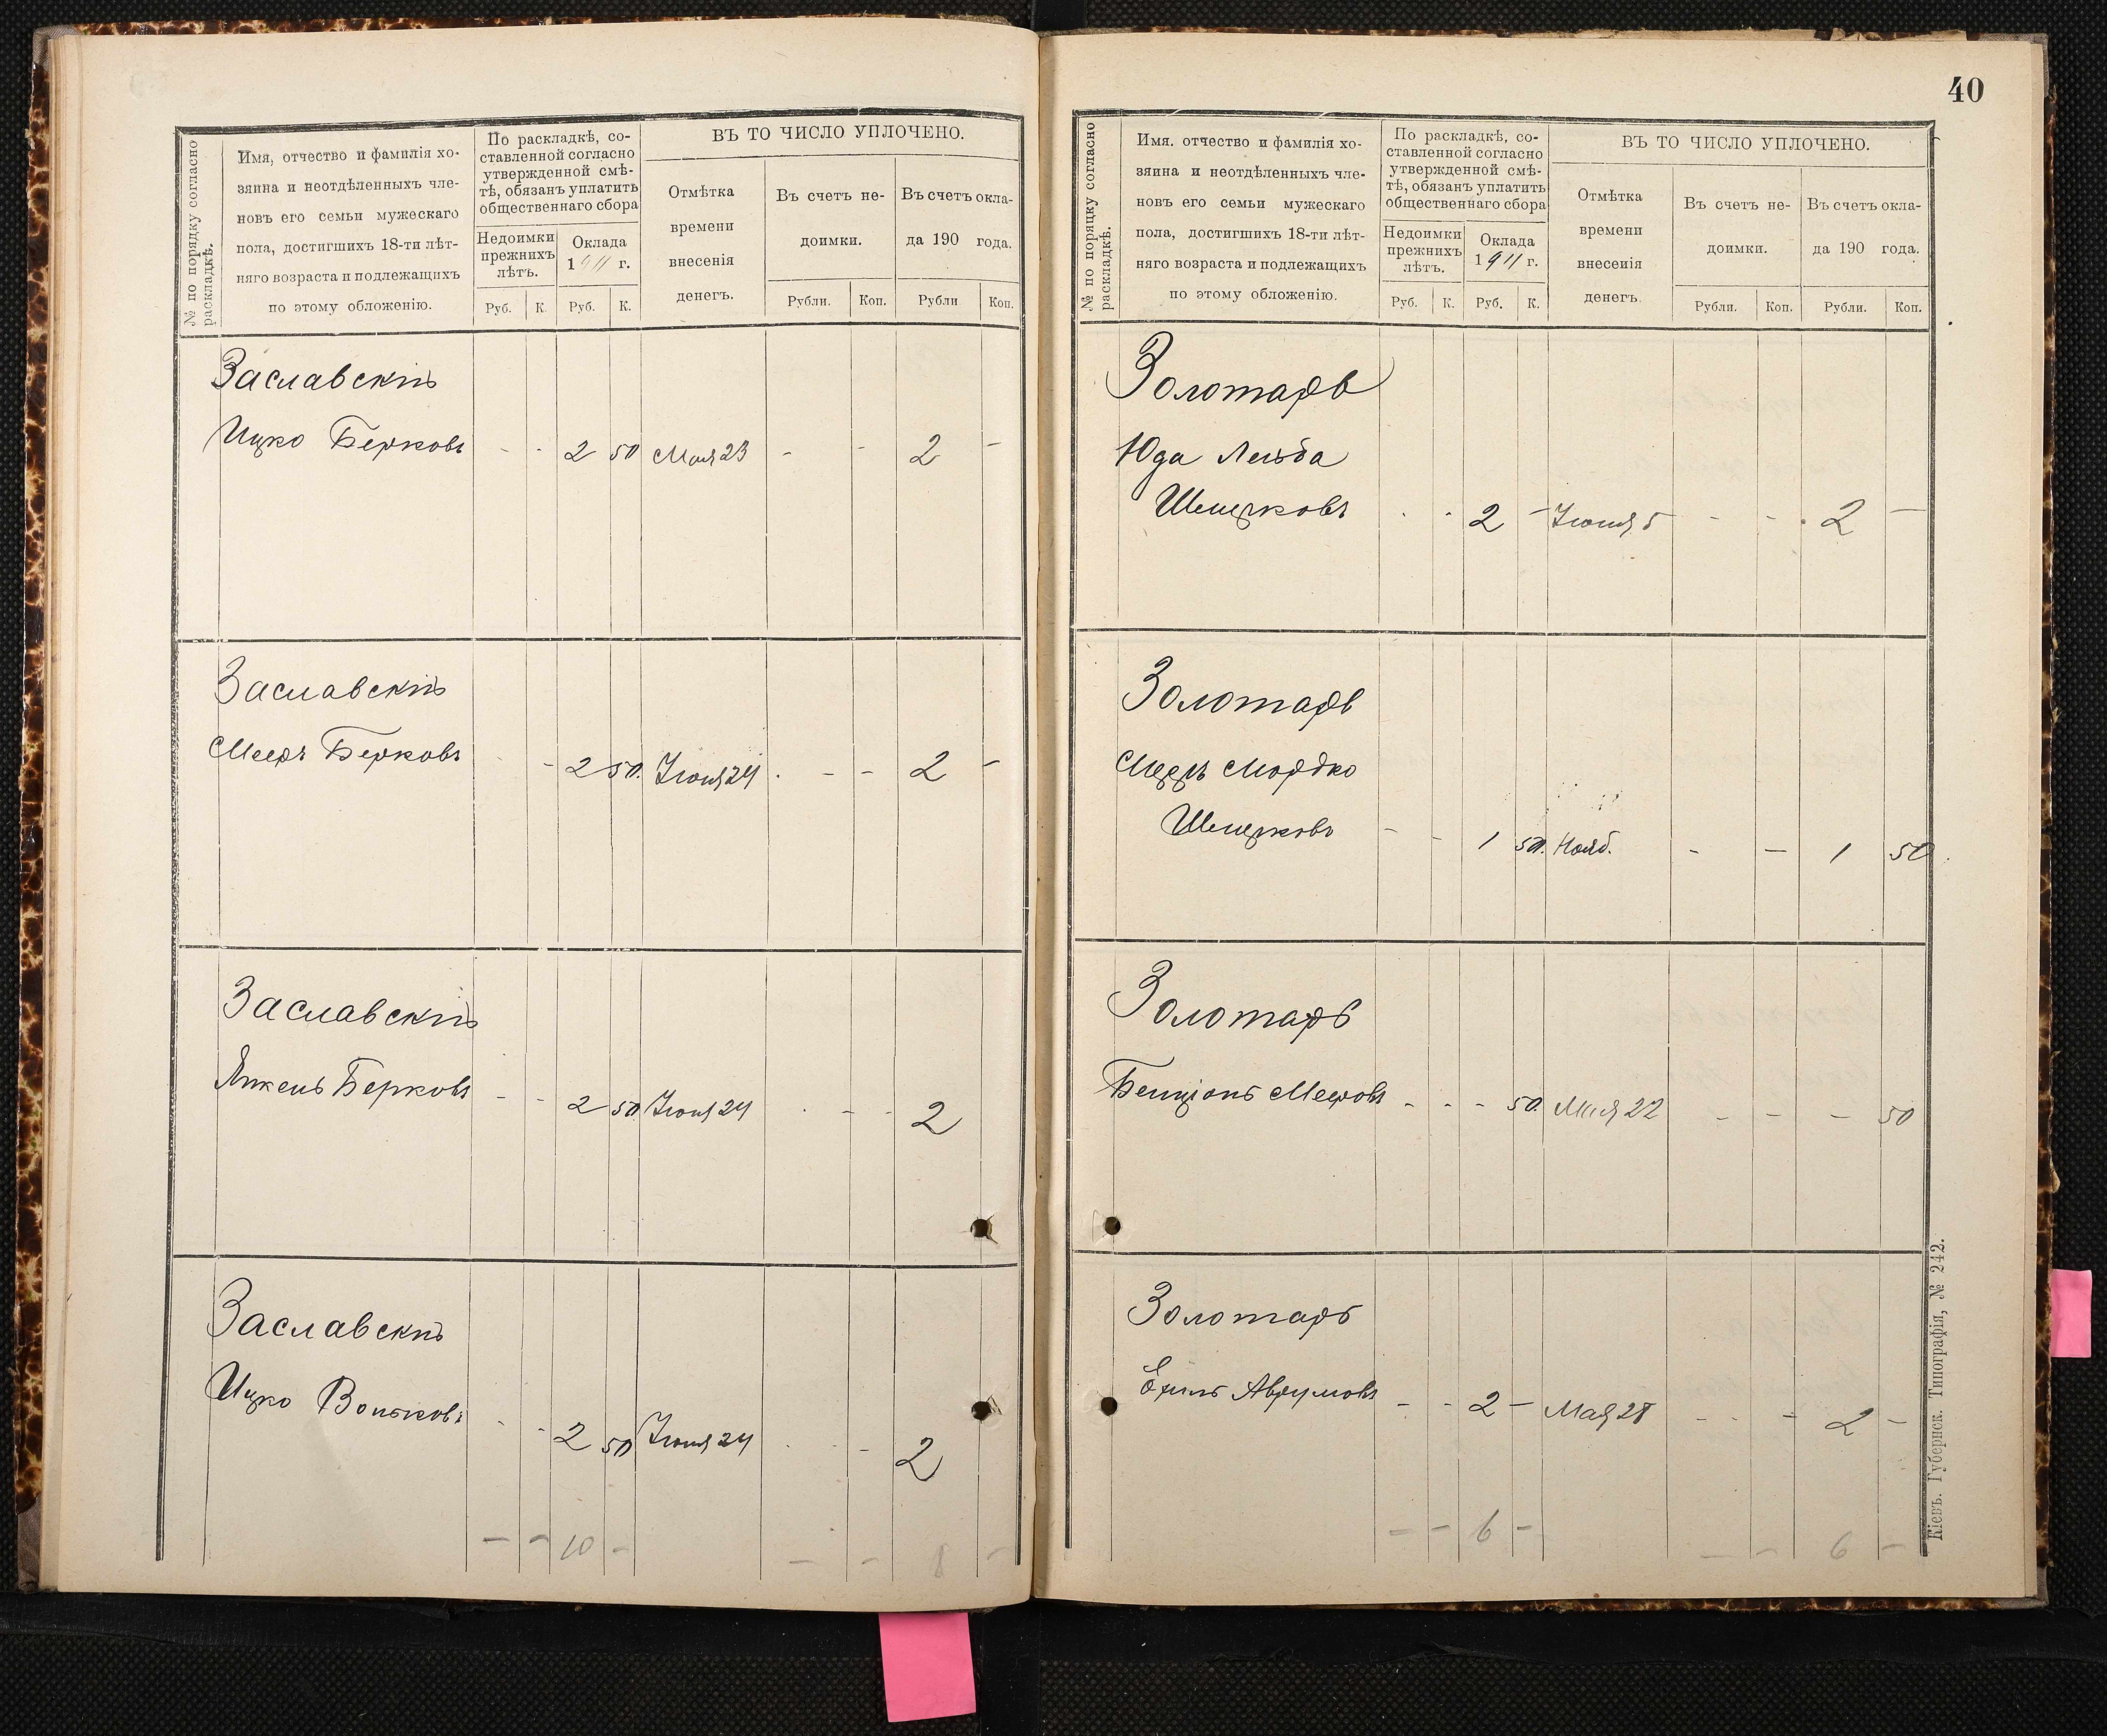 № по порядку согласно
раскладкѣ.
Имя, отчество и фамилія хо-
зяина и неотдѣленныхъ чле-
новъ его семьи мужескаго
пола, достигшихъ 18-ти лѣт-
няго возраста и подлежащихъ
по этому обложенію.
По раскладкѣ, со-
ставленной согласно
утвержденной смѣ-
тѣ, обязанъ уплатить
общественнаго сбора
Недоимки
прежнихъ
лѣтъ.
Оклада
1911 г.
Руб. К. Руб. К.
ВЪ ТО ЧИСЛО УПЛОЧЕНО.
Отмѣтка
времени
внесенія
денегъ.
Въ счетъ не-
доимки.
Въ счетъ окла-
да 190 года.
Рубли. Коп. Рубли Коп.
Заславскій
Ицко Берковъ - - 2 50 Мая 23 - - 2 -
Заславскій
Мееръ Берковъ - - 2 50. Іюня 24 - - 2 -
Заславскій
Янкель Берковъ - - 2 50 Іюня 24 - - 2
Заславскій
Ицко Вольковъ - - 2 50 Іюня 24 - - 2
- - 10 - - - 8 -
40
№ по порядку согласно
раскладкѣ.
Имя. отчество и фамилія хо-
зяина и неотдѣленныхъ чле-
новъ его семьи мужескаго
пола, достигшихъ 18-ти лѣт-
няго возраста и подлежащихъ
по этому обложенію.
По раскладкѣ, со-
ставленной согласно
утвержденной смѣ-
тѣ, обязанъ уплатить
общественнаго сбора
Недоимки
прежнихъ
лѣтъ.
Оклада
1911 г.
Руб. К. Руб. К.
ВЪ ТО ЧИСЛО УПЛОЧЕНО.
Отмѣтка
времени
внесенія
денегъ.
Въ счетъ не-
доимки.
Въ счетъ окла-
да 190 года.
Рубли. Коп. Рубли. Коп.
Золотарь
Юда Лейба
2 - Іюня 5 - - 2 -
Золотарь
Мордко
- - 1 50. Нояб. - - 1 50
Золотарь
Бенціонъ Мееровъ - - - 50. Мая 22 - - - 50
Золотарь
Аврумовъ - - 2 - Мая 28 - - - 2 -
- - 6 - - - 6 -
Кіевъ. Губернск. Типографія, № 242.